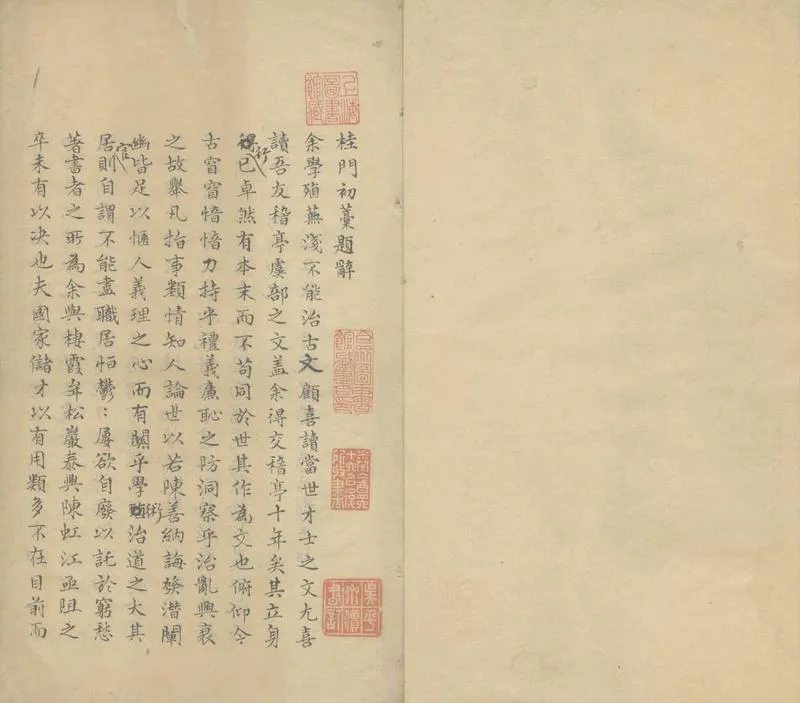 桂門初藁題辭
余學殖蕪淺不能治古文顧喜讀當世才士之文尤喜
讀吾友稽亭虞部之文盖余得交稽亭十年矣其立身
行已卓然有本末而不苟同於世其作為文也俯仰今
古窅窅愔愔力持乎禮義廉恥之防洞察乎治亂興衰
之故舉凡指事類情知人論世以若陳善納誨發潛闡
幽皆足以愜人義理之心而有關乎學術治道之大其
居官則自謂不能盡職居恒鬱：屢欲自廢以託於窮愁
著書者之所為余與棲霞牟松巖泰興陳虹江亟阻之
卒未有以决也夫國家儲才以有用類多不在目前而
上海圖書館藏